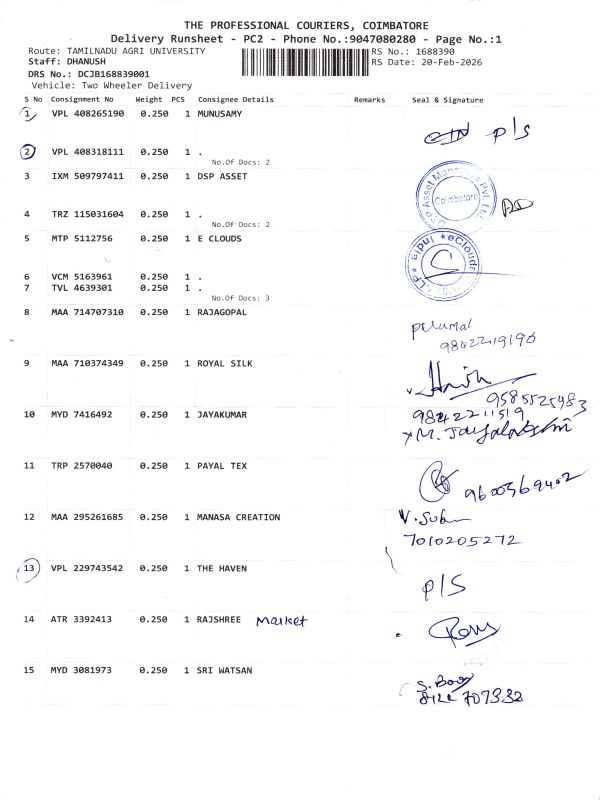 THE PROFESSIONAL COURIERS, COIMBATORE
Delivery Runsheet - PC2 - Phone No.:9047080280 - Page No.:1
Route: TAMILNADU AGRI UNIVERSITY RS No.: 1688390
Staff: DHANUSH RS Date: 20-Feb-2026
DRS No.: DCJB168839001
Vehicle: Two Wheeler Delivery
S No Consignment No Weight PCS Consignee Details Remarks Seal & Signature
1 VPL 408265190 0.250 1 MUNUSAMY
P/S
2 VPL 408318111 0.250 1 .
No.Of Docs: 2
3 IXM 509797411 0.250 1 DSP ASSET
DSP Asset Managers Pvt. Ltd. Coimbatore
4 TRZ 115031604 0.250 1 .
No.Of Docs: 2
5 MTP 5112756 0.250 1 E CLOUDS
eClouds India LLP
6 VCM 5163961 0.250 1 .
7 TVL 4639301 0.250 1 .
No.Of Docs: 3
8 MAA 714707310 0.250 1 RAJAGOPAL
Perumal
9842219190
9 MAA 710374349 0.250 1 ROYAL SILK
9585525483
10 MYD 7416492 0.250 1 JAYAKUMAR
9842211519
M. Jayalakshmi
11 TRP 2570040 0.250 1 PAYAL TEX
9600569402
12 MAA 295261685 0.250 1 MANASA CREATION
V. Sub
7010205272
13 VPL 229743542 0.250 1 THE HAVEN
P/S
14 ATR 3392413 0.250 1 RAJSHREE Market
15 MYD 3081973 0.250 1 SRI WATSAN